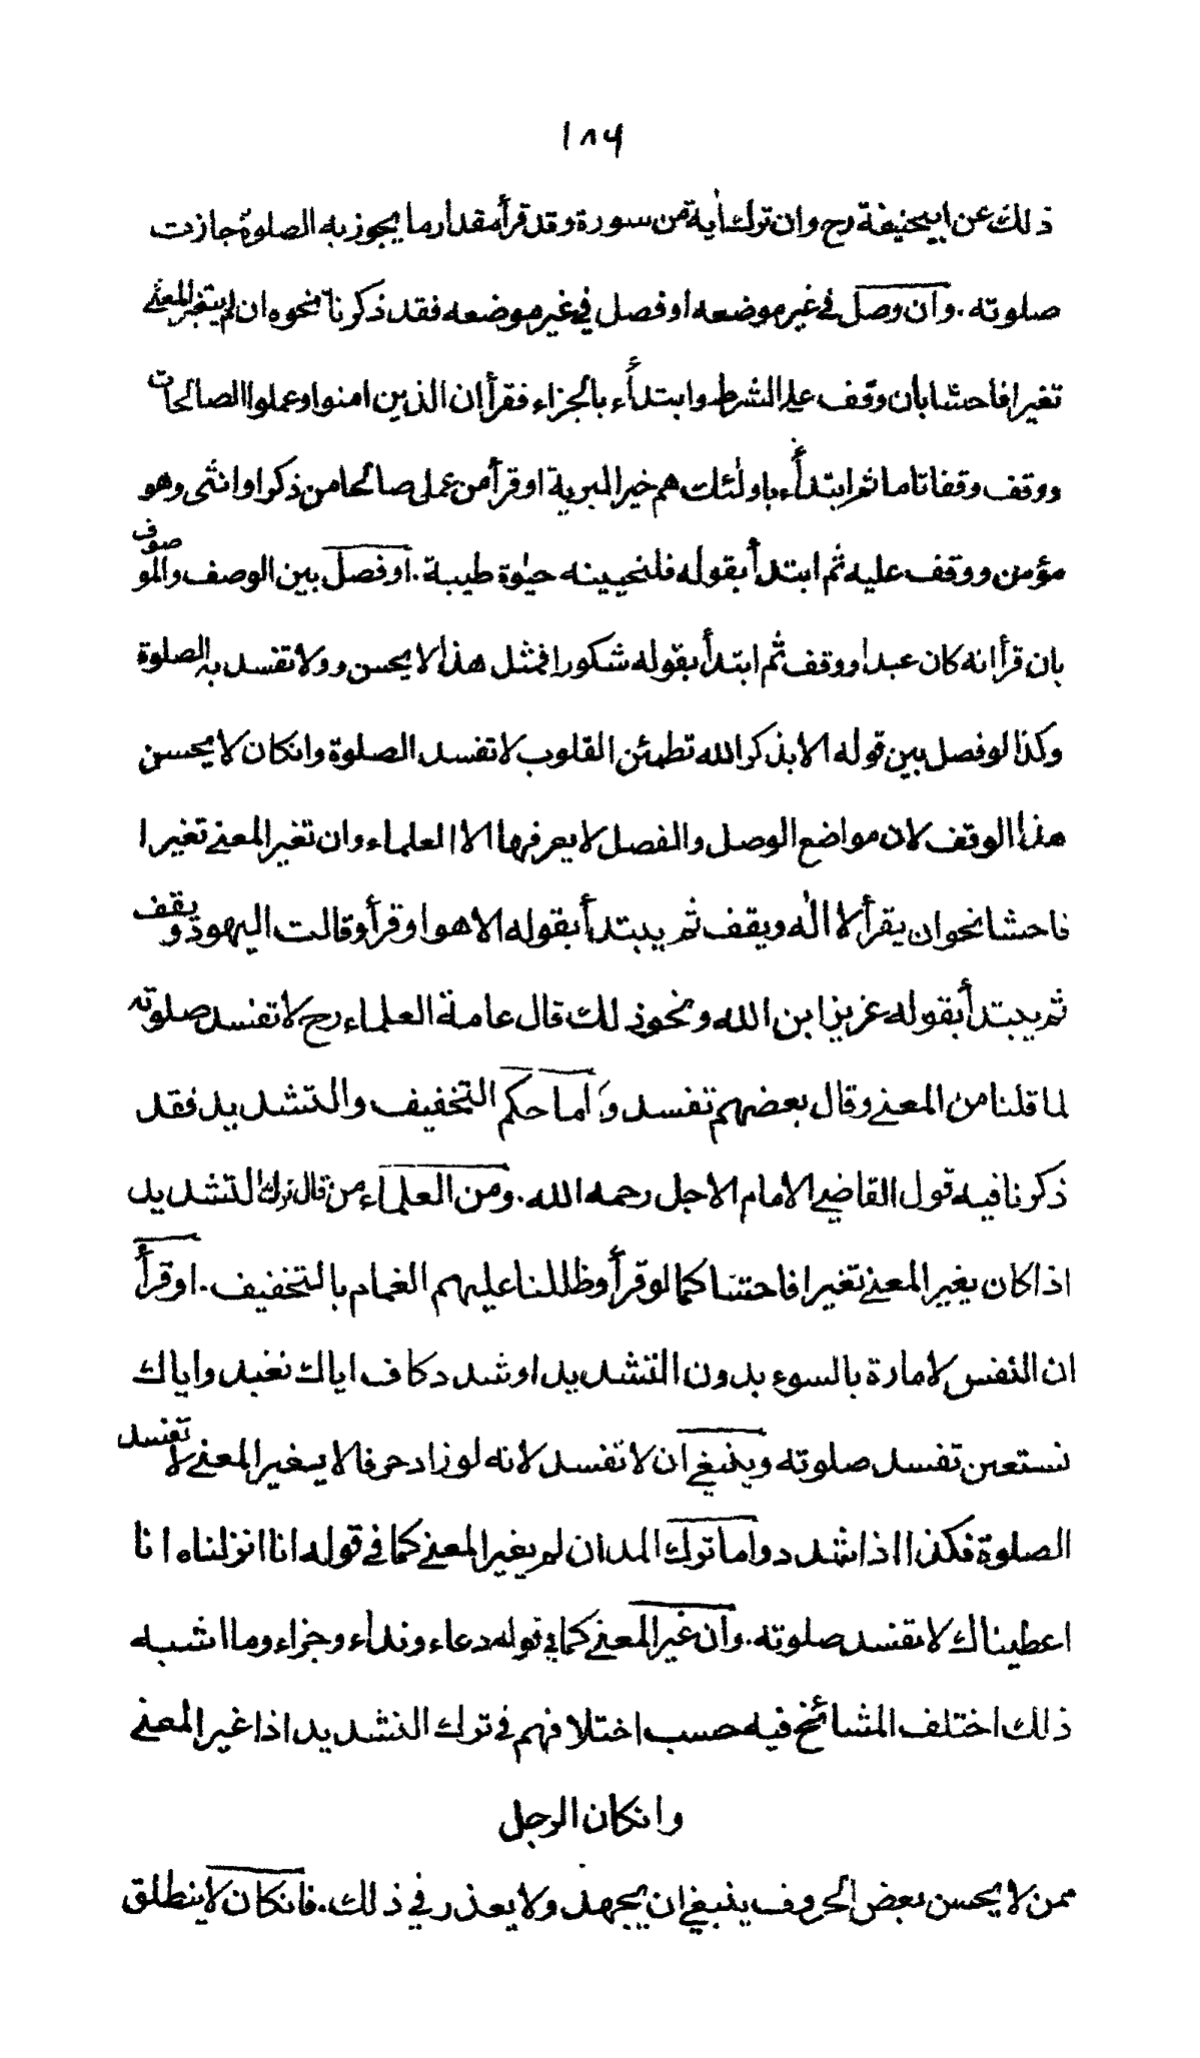 ١٨٦
ذلك عن ابيحنيفة رح وان ترك اٰية من سورة وقد قرأ مقدار ما يجوز به الصلوة جازت
صلوته . وان وصل في غير موضعه او فصل في غير موضعه فقد ذكرنا نحوه ان لم يتغير المعنى
تغيرا فاحشا بان وقف على الشرط وابتدأ بالجزاء فقرأ ان الذين امنوا وعملوا الصالحات
ووقف وقفا تاما ثم ابتدأ باولٰئك هم خير البرية او قرأ من عمل صالحا من ذكر او انثى وهو
مؤمن ووقف عليه ثم ابتدأ بقوله فلنحيينه حيٰوة طيبة . او فصل بين الوصف والموصوف
بان قرأ انه كان عبدا ووقف ثم ابتدأ بقوله شكورا فمثل هذا لا يحسن وولا تفسد به الصلوة
وكذا لو فصل بين قوله الا بذكر الله تطمئن القلوب لا تفسد الصلوة وانكان لا يحسن
هذا الوقف لان مواضع الوصل والفصل لا يعرفها الا العلماء وان تغير المعنى تغيرا
فاحشا نحو ان يقرأ لا الٰه ويقف ثم يبتدأ بقوله الا هو او قرأ وقالت اليهود ويقف
ثم يبتدأ بقوله عزيز ابن الله ونحو ذلك قال عامة العلماء رح لا تفسد صلوته
لما قلنا من المعنى وقال بعضهم تفسد وَاما حكم التخفيف والتشديد فقد
ذكرنا فيه قول القاضي الامام الاجل رحمه الله . ومن العلماء من قال ترك التشديد
اذا كان يغير المعنى تغيرا فاحشا كما لو قرأ وظللنا عليهم الغمام بالتخفيف . او قرأ
ان النفس لامارة بالسوء بدون التشديد او شدد كاف اياك نعبد واياك
نستعين تفسد صلوته وينبغي ان لا تفسد لانه لو زاد حرفا لا يغير المعنى لا تفسد
الصلوة فكذا اذا شدد واما ترك المد ان لم يغير المعنى كما في قوله انا انزلناه انا
اعطيناك لا تفسد صلوته . وان غير المعنى كما في قوله دعاء ونداء وجزاء وما اشبه
ذلك اختلف المشائخ فيه حسب اختلافهم في ترك التشديد اذا غير المعنى
وانكان الرجل
ممن لا يحسن بعض الحروف ينبغي ان يجهد ولا يعذر في ذلك . فانكان لا ينطلق